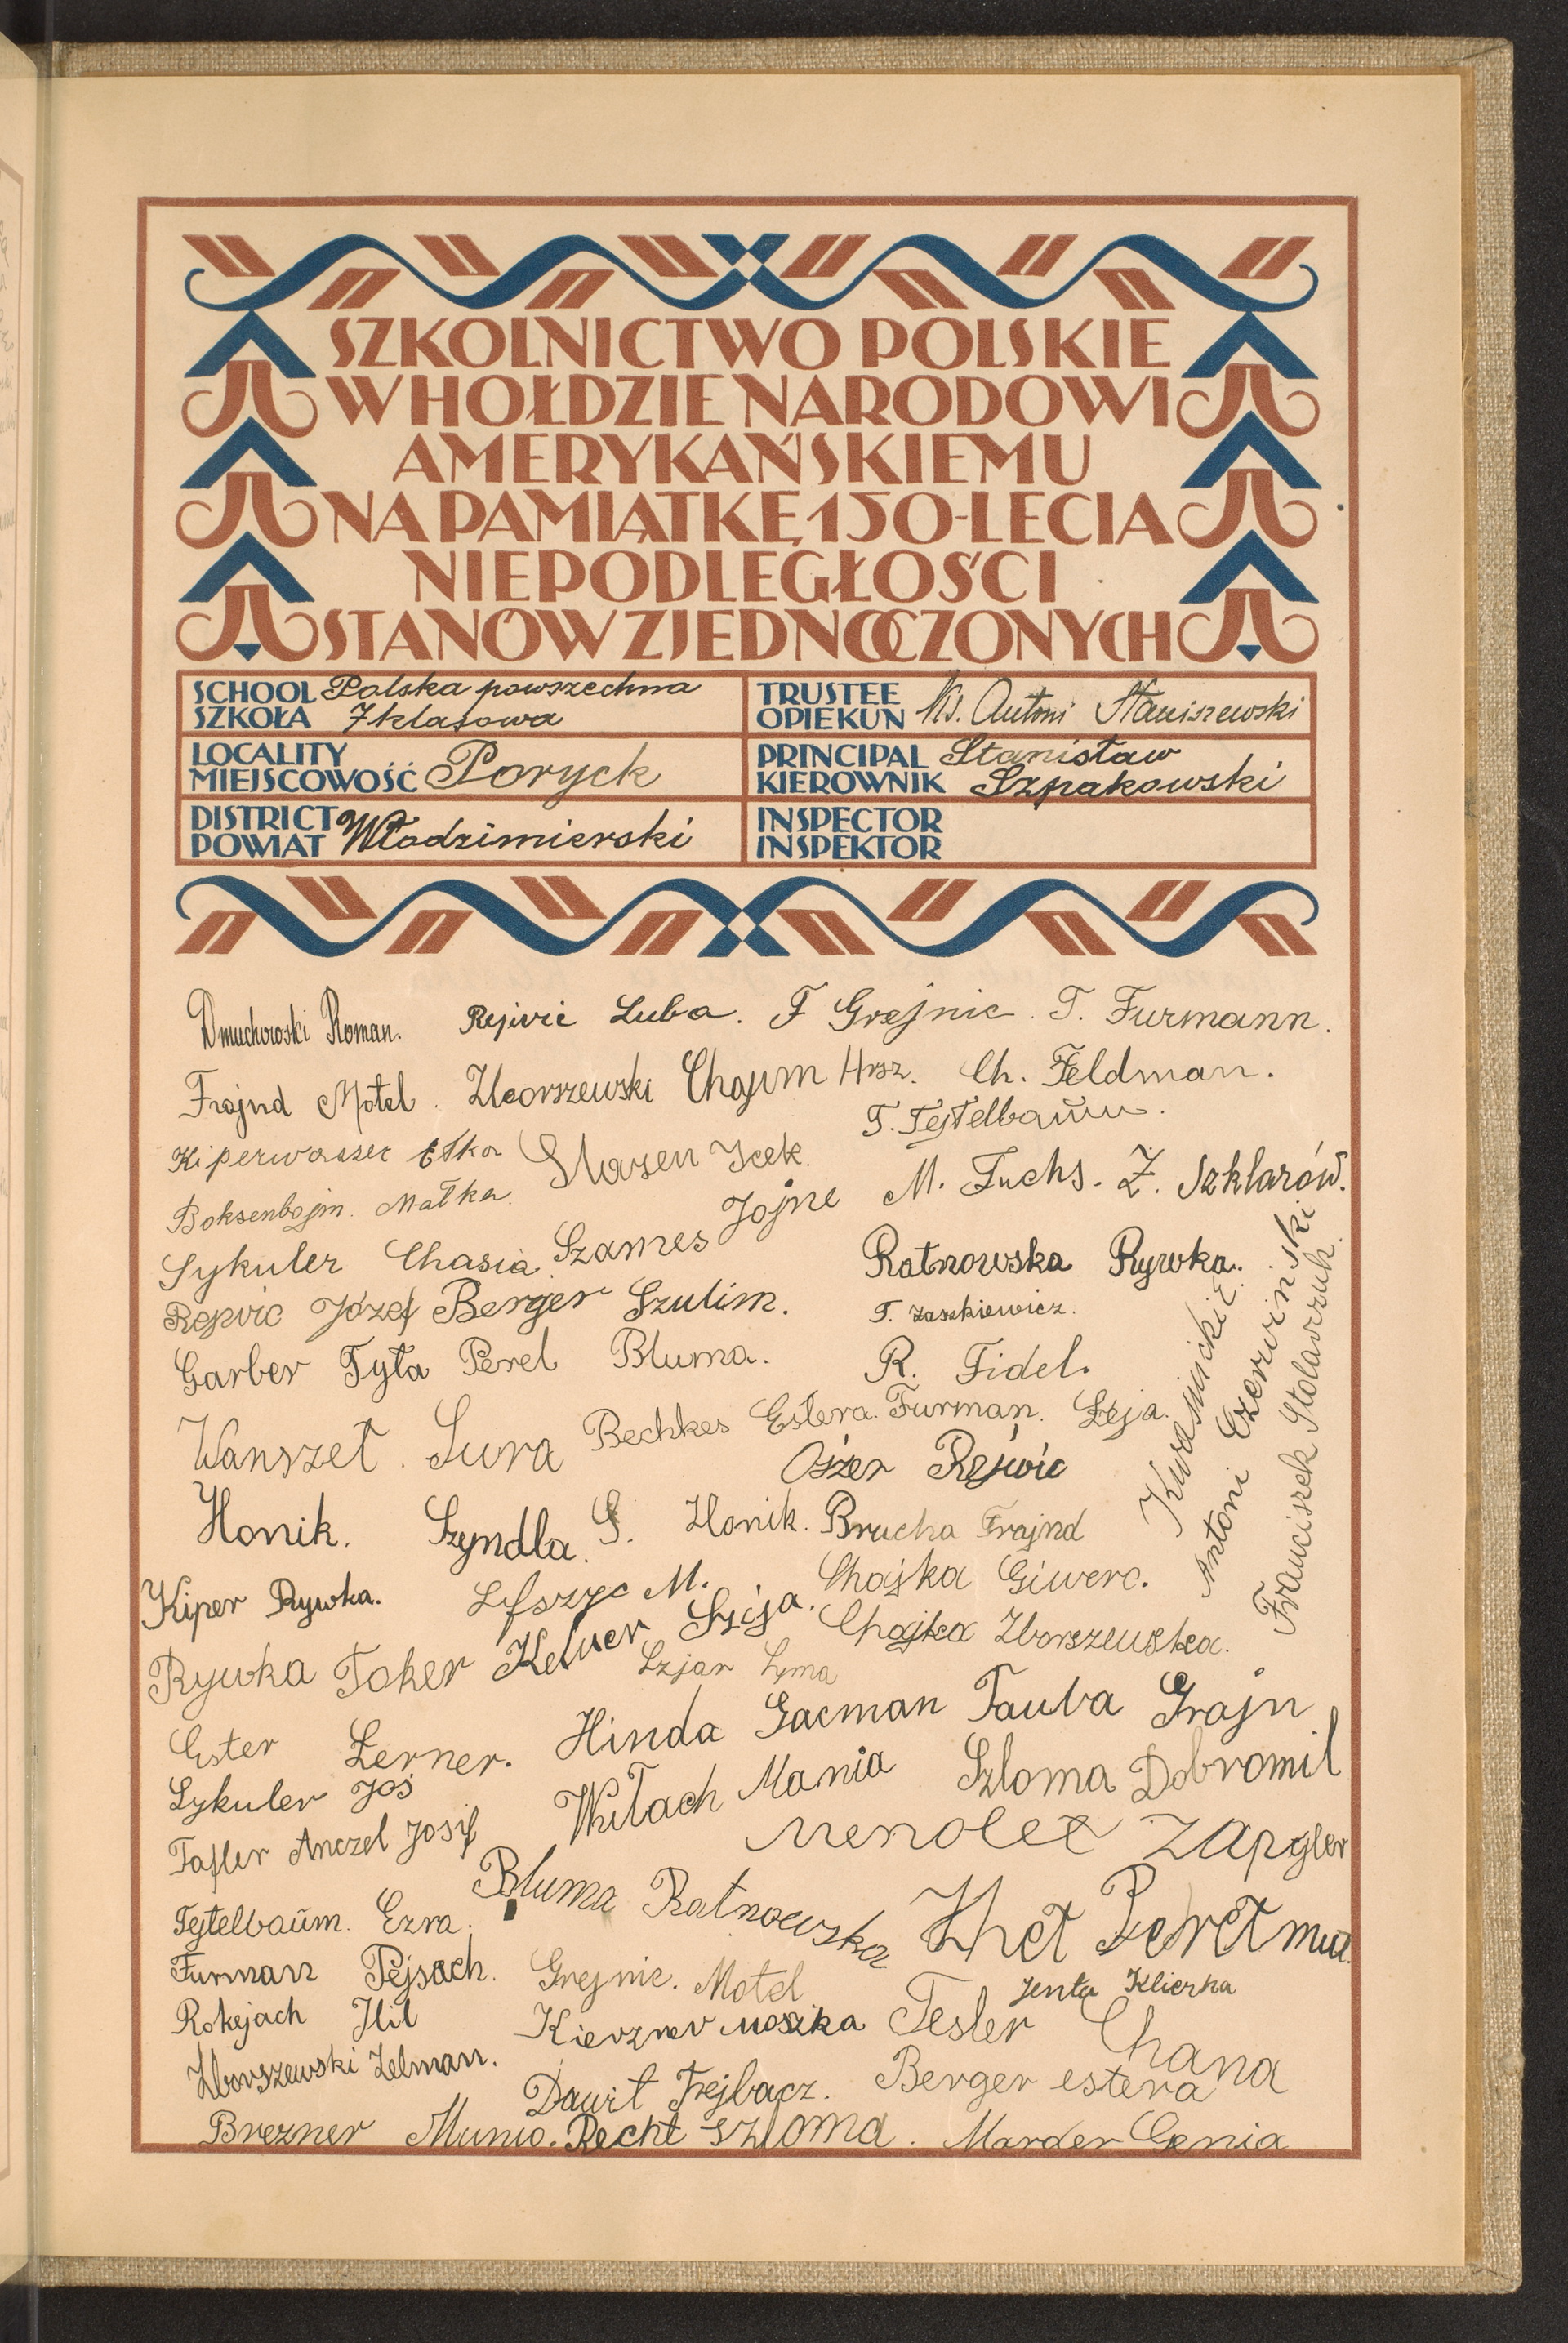 SZKOLNICTWO POLSKIE
W HOŁDZIE NARODOWI
AMERYKAŃSKIEMU
NA PAMIĄTKĘ 150-LECIA
NIEPODLEGŁOŚCI
STANÓW ZJEDNOCZONYCH
SCHOOL Polska powszechna
SZKOŁA 7 klasowa
TRUSTEE
OPIEKUN Ks. Antoni Staniszewski
LOCALITY
MIEJSCOWOŚĆ Poryck
PRINCIPAL Stanisław
KIEROWNIK Szpakowski
DISTRICT
POWIAT Włodzimierski
INSPECTOR
INSPEKTOR
Dmuchowski Roman. Rejwic Luba. F Grejnic. T. Furmann.
Frajnd Motel. Zborszewski Chajim Hrsz. Ch. Feldman.
T. Tejtelbaūm.
Kiperwasser Etka Icek.
Boksenbojm. Małka. Jojne M. Fuchs. Z. Szklarów.
Sykuler Chasia Szames Ratnowska Rywka.
Rejwic Józef Berger Szulim. T. Zaszkiewicz.
Garber Tyła Perel Bluma. R. Fidel.
Wanszet. Sura Bechkes Estera. Furman. Łeja.
Ojzer Rejwic
Honik. Szyndla. S. Honik. Brucha Frajnd
Kiper Rywka. Lifszyc M. Chajka Giwerc.
Rywka Toker Kelner Szija. Chajka Zborszewska.
Szjar Syma
Ester Lerner. Hinda Gacman Tauba Grajn
Sykuler Joś Witach Mania Szloma Dobromil
Tafler Anczel Josif Zapgler
Bluma Ratnowska
Tejtelbaūm. Ezra.
Furmann Pejsach. Grejnic. Motel Jenta Klierka
Rokejach Hil Kierzner Moszka Tesler Chana
Zborszewski Zelman.
Dawit Frejbacz. Berger estera
Brezner Munio. Recht szloma. Marder Genia
Kwaśnicki E.
Antoni Czerwinski
Franciszek Stolarzuk.